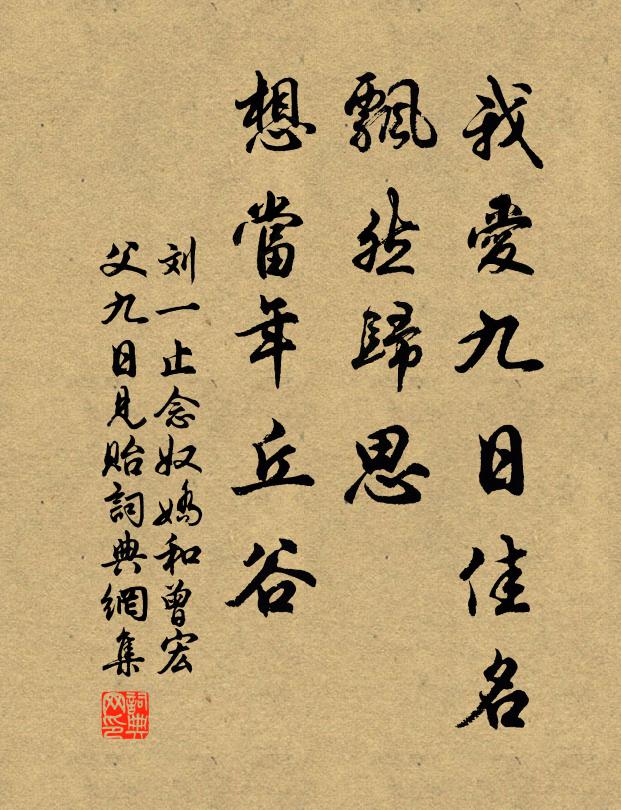 我愛九日佳名
飄然歸思
想當年丘谷
刘一止念奴嬌和曾宏
父九日見貽詞典網集
詞典网印